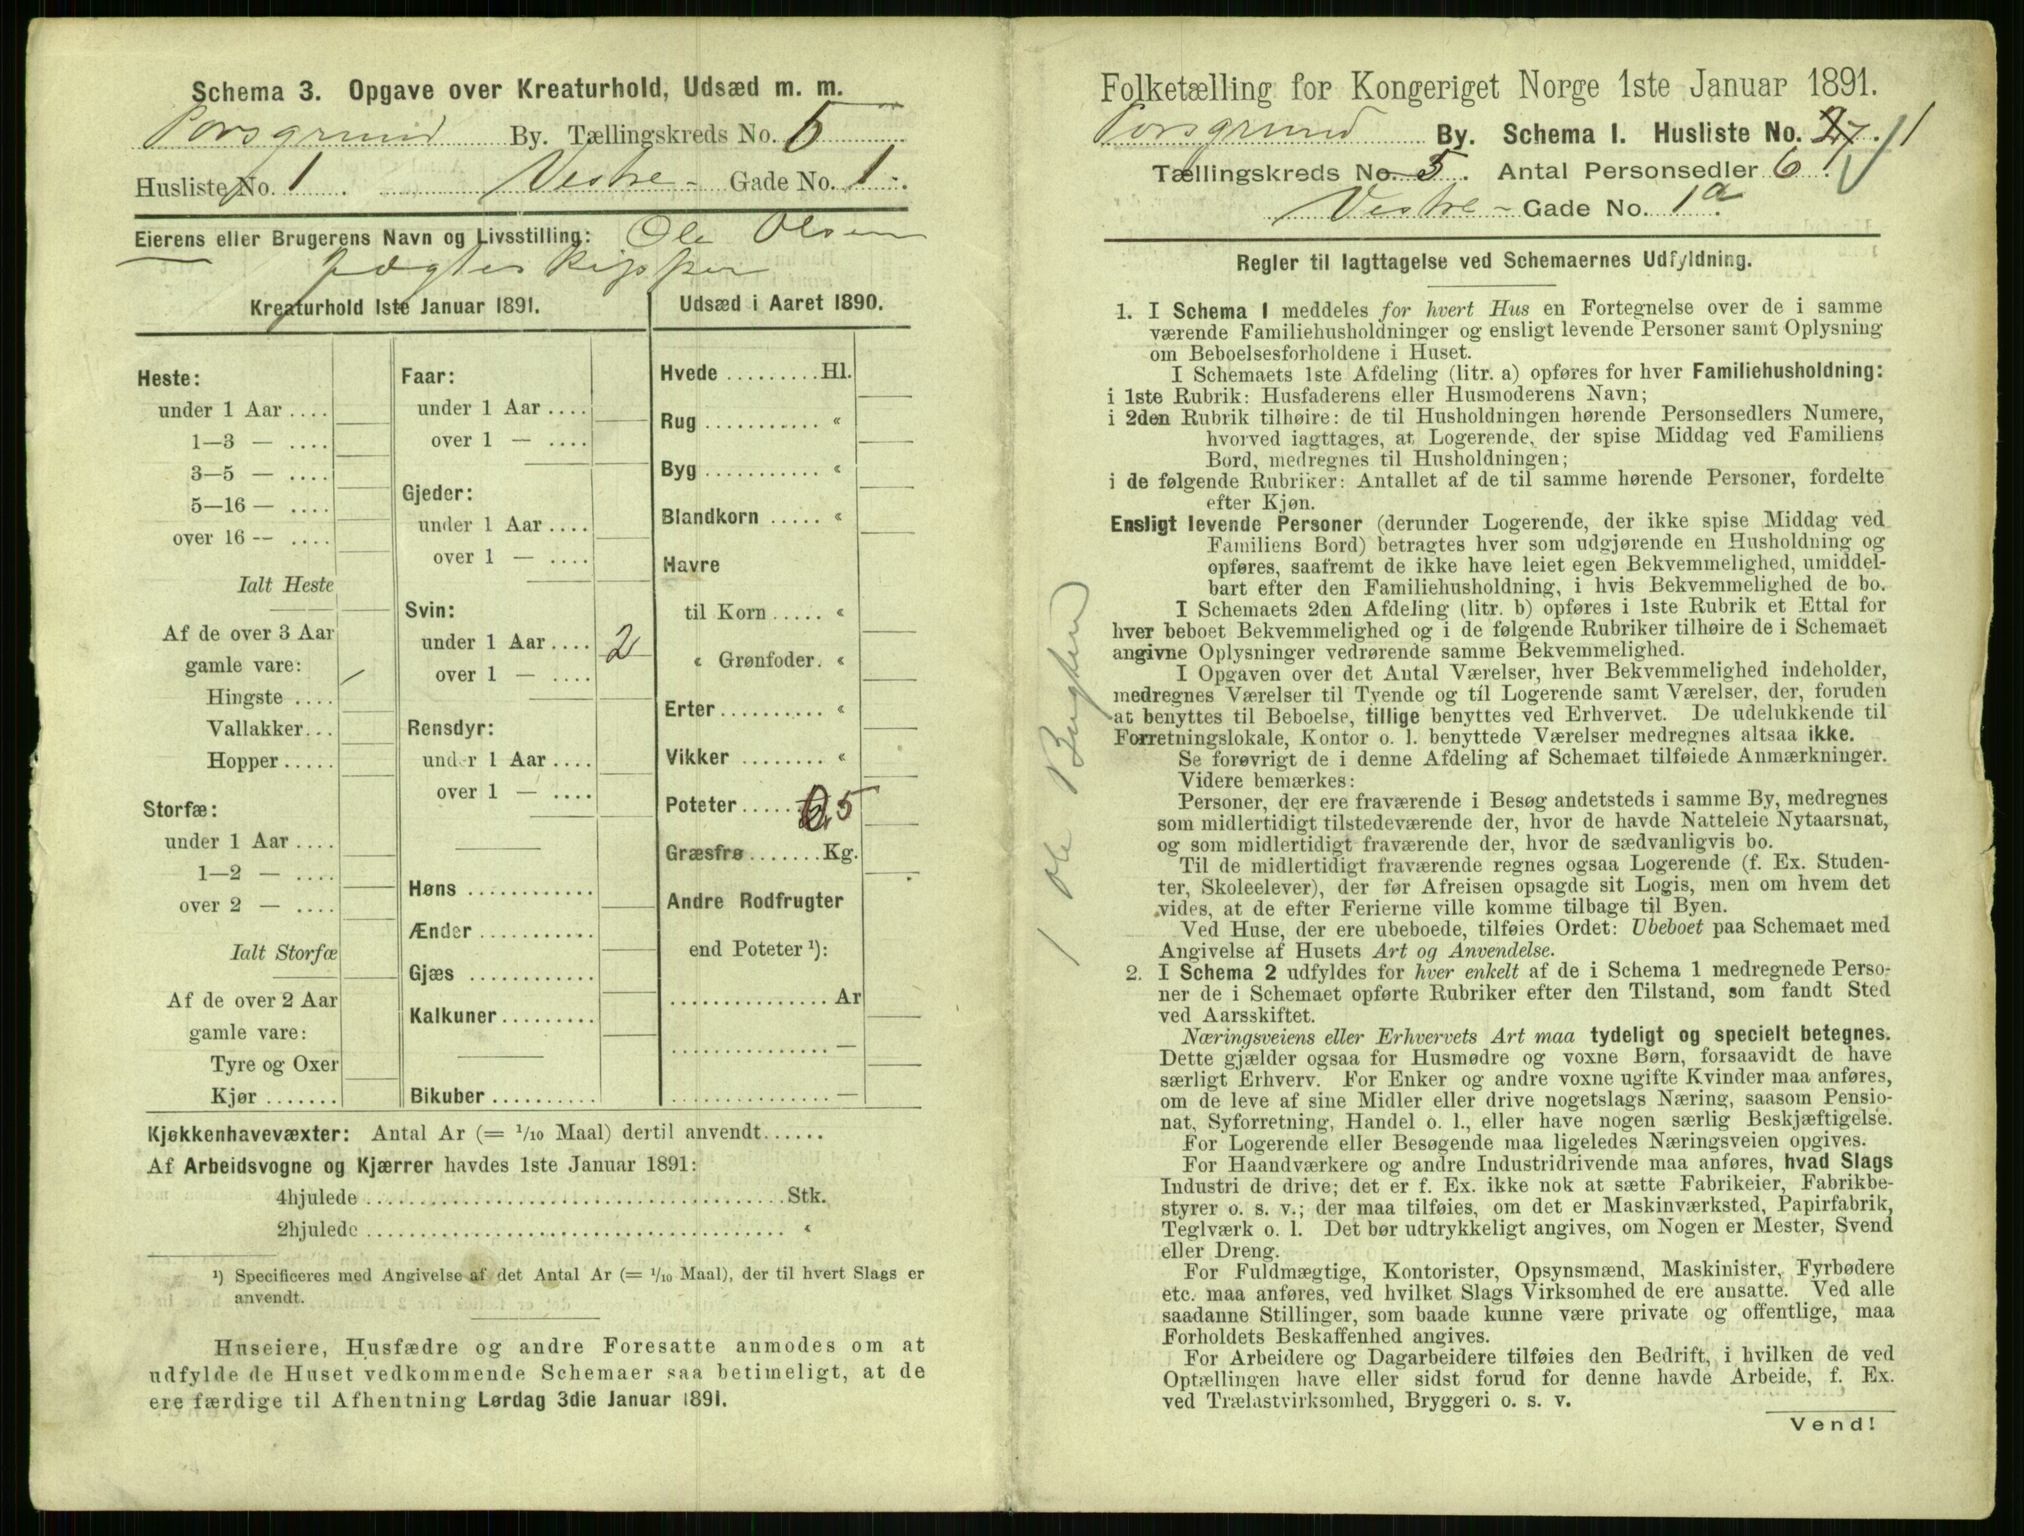 Schema 3. Opgave over Kreaturhold, Udsæd m. m.
Porsgrund By. Tællingskreds No. 5
Husliste No. 1. Vestre - Gade No. 1.
Eierens eller Brugerens Navn og Livsstilling: Ole Olsen
jægteskipper
Kreaturhold 1ste Januar 1891.
Heste:
under 1 Aar ....
1—3 — ....
3—5 — ....
5—16 — ....
over 16 -- ....
Ialt Heste
Af de over 3 Aar
gamle vare:
Hingste ....
Vallakker...
Hopper.....
Storfæ:
under 1 Aar ....
1—2 — ....
over 2 — ....
Ialt Storfæ
Af de over 2 Aar
gamle vare:
Tyre og Oxer
Kjør .......
Faar:
under 1 Aar ....
over 1 — ....
Gjeder:
under 1 Aar ....
over 1 — ....
Svin:
under 1 Aar .... 2
over 1 — ....
Rensdyr:
under 1 Aar ....
over 1 — ....
Høns ............
Ænder ...........
Gjæs ............
Kalkuner.........
Bikuber ..........
Udsæd i Aaret 1890.
Hvede .........Hl.
Rug ........... «
Byg ........... «
Blandkorn ..... «
Havre
til Korn ..... «
« Grønfoder. «
Erter.......... «
Vikker ........ «
Poteter ...... 0,5
Græsfrø .......Kg.
Andre Rodfrugter
end Poteter ¹):
............... Ar
............... —
............... —
Kjøkkenhavevæxter: Antal Ar (= 1/10 Maal) dertil anvendt......
Af Arbeidsvogne og Kjærrer havdes 1ste Januar 1891:
4hjulede ........................................Stk.
2hjulede ........................................ «
¹) Specificeres med Angivelse af det Antal Ar (= 1/10 Maal), der til hvert Slags er
anvendt.
Huseiere, Husfædre og andre Foresatte anmodes om at
udfylde de Huset vedkommende Schemaer saa betimeligt, at de
ere færdige til Afhentning Lørdag 3die Januar 1891.
Folketælling for Kongeriget Norge 1ste Januar 1891.
Porsgrund By. Schema I. Husliste No. 1
Tællingskreds No. 5. Antal Personsedler 6.
Vestre - Gade No. 1a.
Regler til Iagttagelse ved Schemaernes Udfyldning.
1. I Schema 1 meddeles for hvert Hus en Fortegnelse over de i samme
værende Familiehusholdninger og ensligt levende Personer samt Oplysning
om Beboelsesforholdene i Huset.
I Schemaets 1ste Afdeling (litr. a) opføres for hver Familiehusholdning:
i 1ste Rubrik: Husfaderens eller Husmoderens Navn;
i 2den Rubrik tilhøire: de til Husholdningen hørende Personsedlers Numere,
hvorved iagttages, at Logerende, der spise Middag ved Familiens
Bord, medregnes til Husholdningen;
i de følgende Rubriker: Antallet af de til samme hørende Personer, fordelte
efter Kjøn.
Ensligt levende Personer (derunder Logerende, der ikke spise Middag ved
Familiens Bord) betragtes hver som udgjørende en Husholdning og
opføres, saafremt de ikke have leiet egen Bekvemmelighed, umiddel-
bart efter den Familiehusholdning, i hvis Bekvemmelighed de bo.
I Schemaets 2den Afdeling (litr. b) opføres i 1ste Rubrik et Ettal for
hver beboet Bekvemmelighed og i de følgende Rubriker tilhøire de i Schemaet
angivne Oplysninger vedrørende samme Bekvemmelighed.
I Opgaven over det Antal Værelser, hver Bekvemmelighed indeholder,
medregnes Værelser til Tyende og til Logerende samt Værelser, der, foruden
at benyttes til Beboelse, tillige benyttes ved Erhvervet. De udelukkende til
Forretningslokale, Kontor o. l. benyttede Værelser medregnes altsaa ikke.
Se forøvrigt de i denne Afdeling af Schemaet tilføiede Anmærkninger.
Videre bemærkes:
Personer, der ere fraværende i Besøg andetsteds i samme By, medregnes
som midlertidigt tilstedeværende der, hvor de havde Natteleie Nytaarsnat,
og som midlertidigt fraværende der, hvor de sædvanligvis bo.
Til de midlertidigt fraværende regnes ogsaa Logerende (f. Ex. Studen-
ter, Skoleelever), der før Afreisen opsagde sit Logis, men om hvem det
vides, at de efter Ferierne ville komme tilbage til Byen.
Ved Huse, der ere ubeboede, tilføies Ordet: Ubeboet paa Schemaet med
Angivelse af Husets Art og Anvendelse.
2. I Schema 2 udfyldes for hver enkelt af de i Schema 1 medregnede Perso-
ner de i Schemaet opførte Rubriker efter den Tilstand, som fandt Sted
ved Aarsskiftet.
Næringsveiens eller Erhvervets Art maa tydeligt og specielt betegnes.
Dette gjælder ogsaa for Husmødre og voxne Børn, forsaavidt de have
særligt Erhverv. For Enker og andre voxne ugifte Kvinder maa anføres,
om de leve af sine Midler eller drive nogetslags Næring, saasom Pensio-
nat, Syforretning, Handel o. l., eller have nogen særlig Beskjæftigelse.
For Logerende eller Besøgende maa ligeledes Næringsveien opgives.
For Haandværkere og andre Industridrivende maa anføres, hvad Slags
Industri de drive; det er f. Ex. ikke nok at sætte Fabrikeier, Fabrikbe-
styrer o. s. v.; der maa tilføies, om det er Maskinværksted, Papirfabrik,
Teglværk o. l. Det bør udtrykkeligt angives, om Nogen er Mester, Svend
eller Dreng.
For Fuldmægtige, Kontorister, Opsynsmænd, Maskinister, Fyrbødere
etc. maa anføres, ved hvilket Slags Virksomhed de ere ansatte. Ved alle
saadanne Stillinger, som baade kunne være private og offentlige, maa
Forholdets Beskaffenhed angives.
For Arbeidere og Dagarbeidere tilføies den Bedrift, i hvilken de ved
Optællingen have eller sidst forud for denne havde Arbeide, f. Ex.
ved Trælastvirksomhed, Bryggeri o. s. v.
Vend!